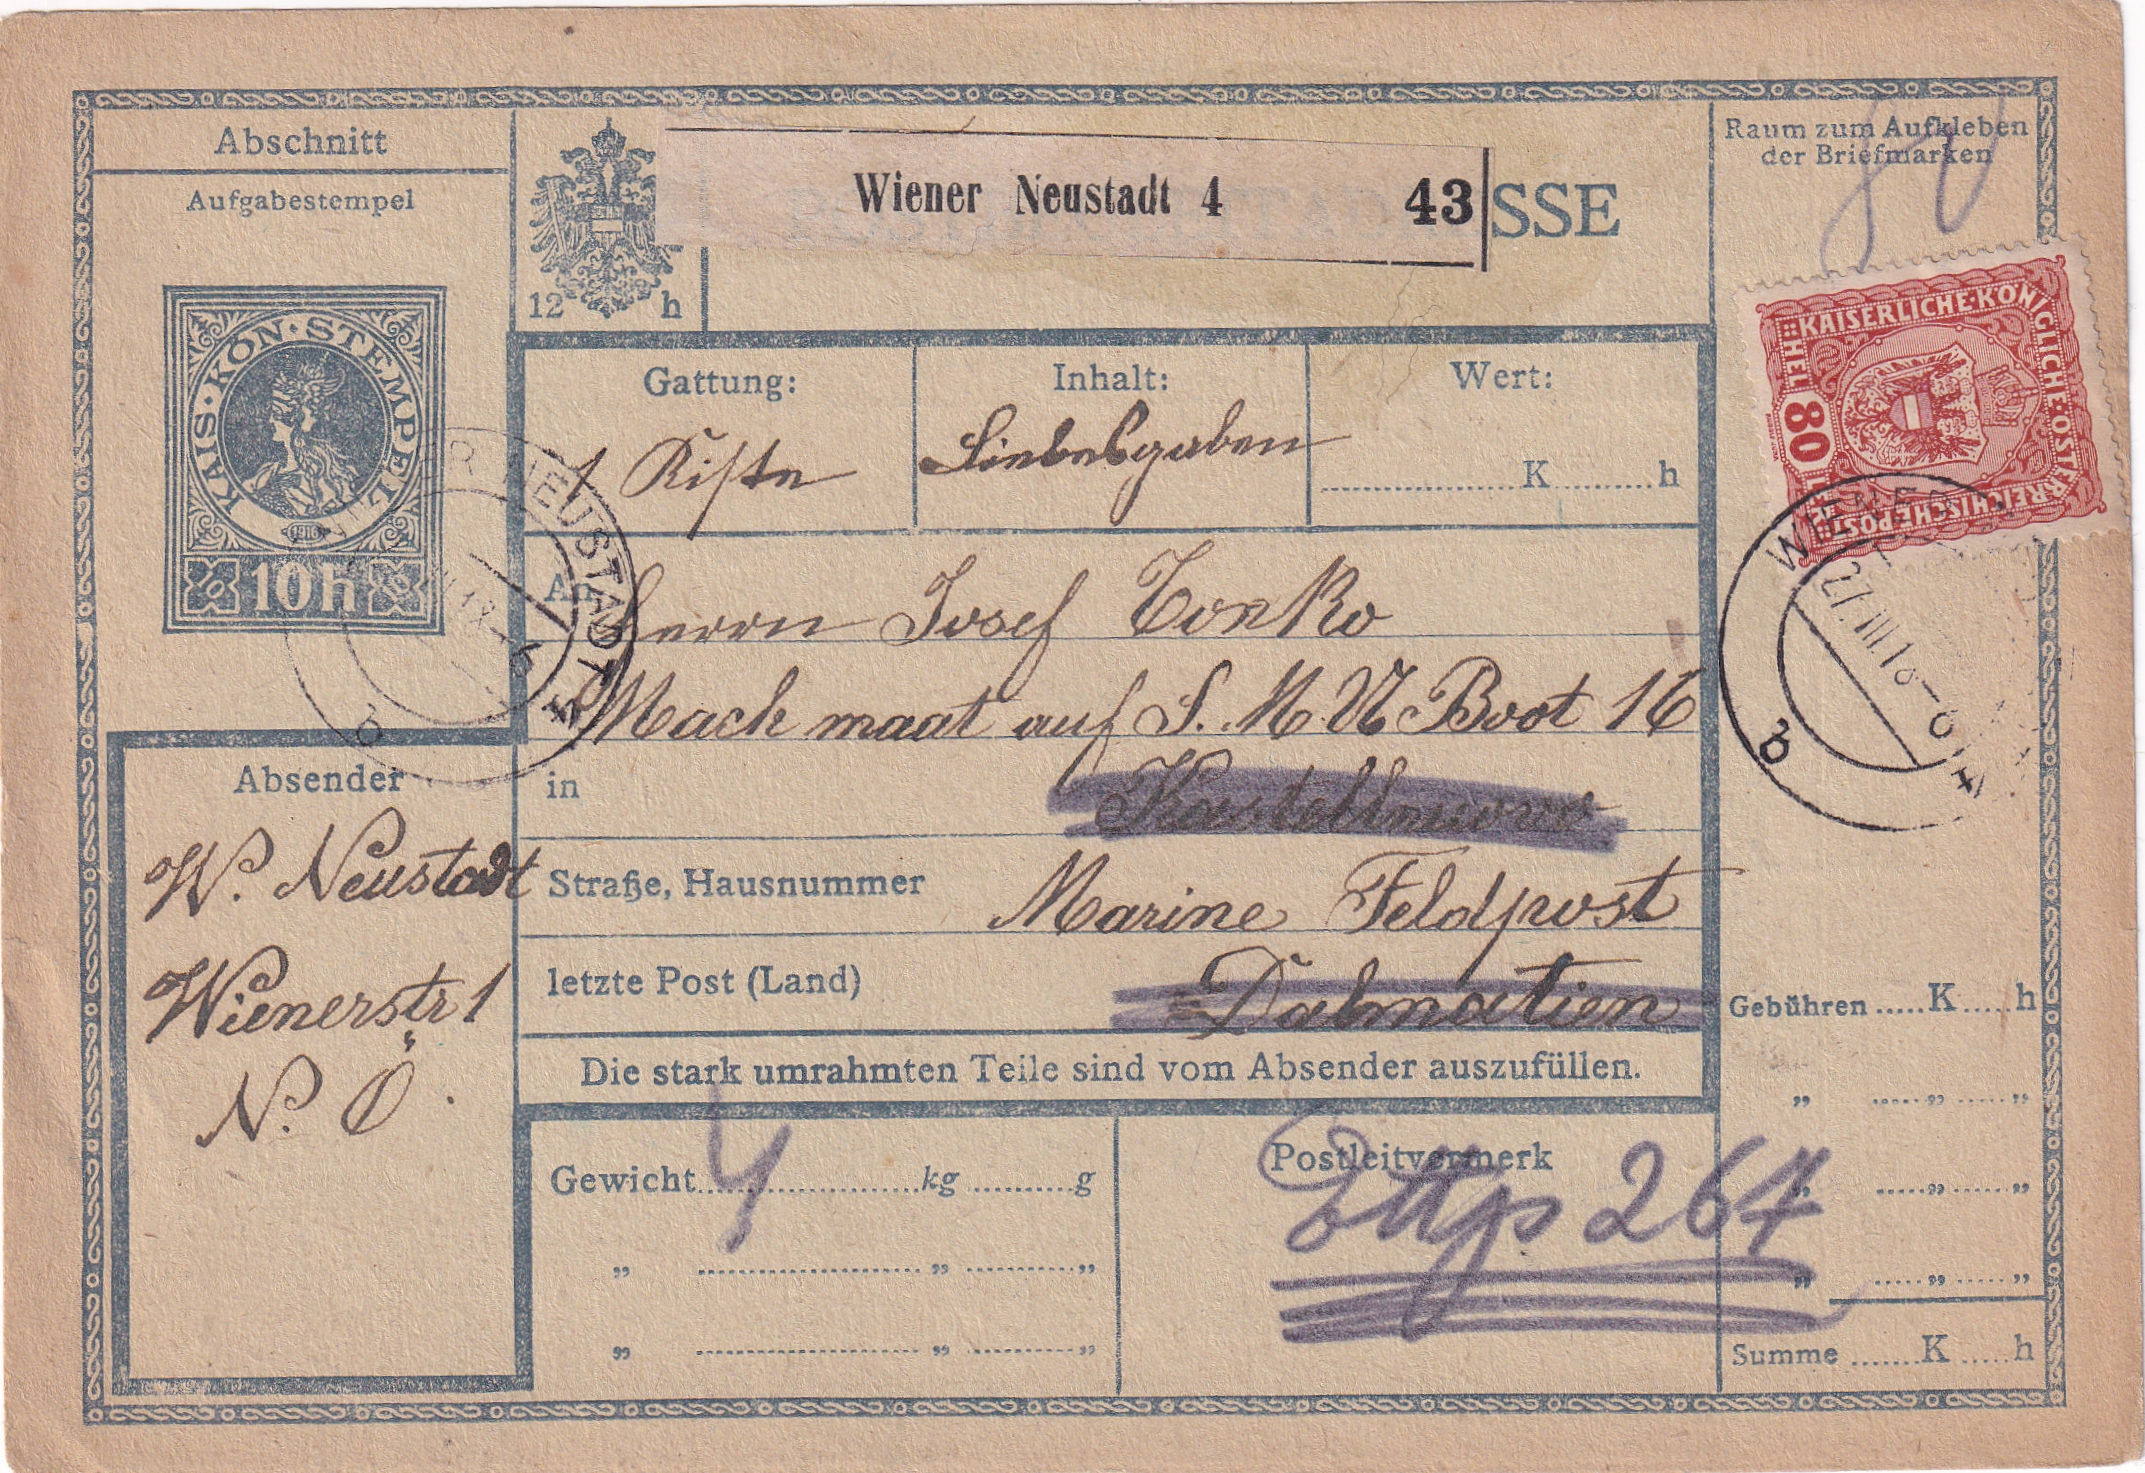 Abschnitt
Aufgabestempel
KAIS·KÖN·STEMPEL
1916
10 h
12 h
Wiener Neustadt 4 43
SSE
Raum zum Aufkleben
der Briefmarken
80
KAISERLICHE·KÖNIGLICHE·ÖSTERREICHISCHE POST
HELLER 80
WIENER NEUSTADT 4
b
WIENER
27.III.18-6
b
Gattung: Inhalt: Wert:
1 Kiste Liebesgaben K h
An Herrn Josef Tonko
Mach maat auf S. M. U Boot 16
in Kastellnuovo
Straße, Hausnummer Marine Feldpost
letzte Post (Land) Dalmatien
Die stark umrahmten Teile sind vom Absender auszufüllen.
Absender
W. Neustadt
Wienerstr 1
N. Ö.
Gewicht 4 kg g
" " "
" " "
Postleitvermerk
264
Gebühren K h
" " "
" " "
" " "
Summe K h